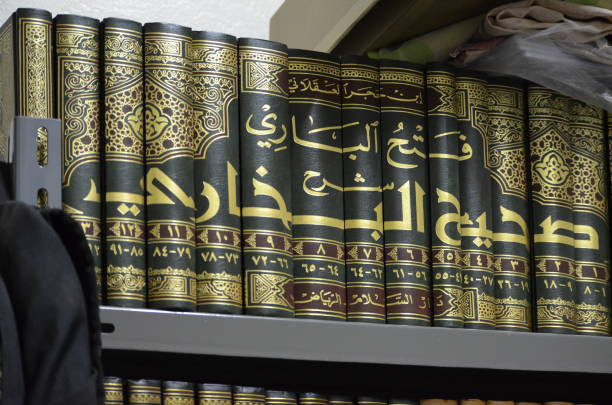 ابن حجر العسقلاني
فتح الباري
شرح
صحيح البخاري
١ ٢ ٣ ٤ ٥ ٦ ٧ ٨ ٩ ١٠ ١١ ١٢ ١٣
١-٨ ٩-١٨ ١٩-٢٦ ٢٧-٤٠ ٤١-٥٥ ٥٦-٦١ ٦٢-٦٤ ٦٤-٦٥ ٦٦-٧٢ ٧٣-٧٨ ٧٩-٨٤ ٨٥-٩١
دار السلام الرياض